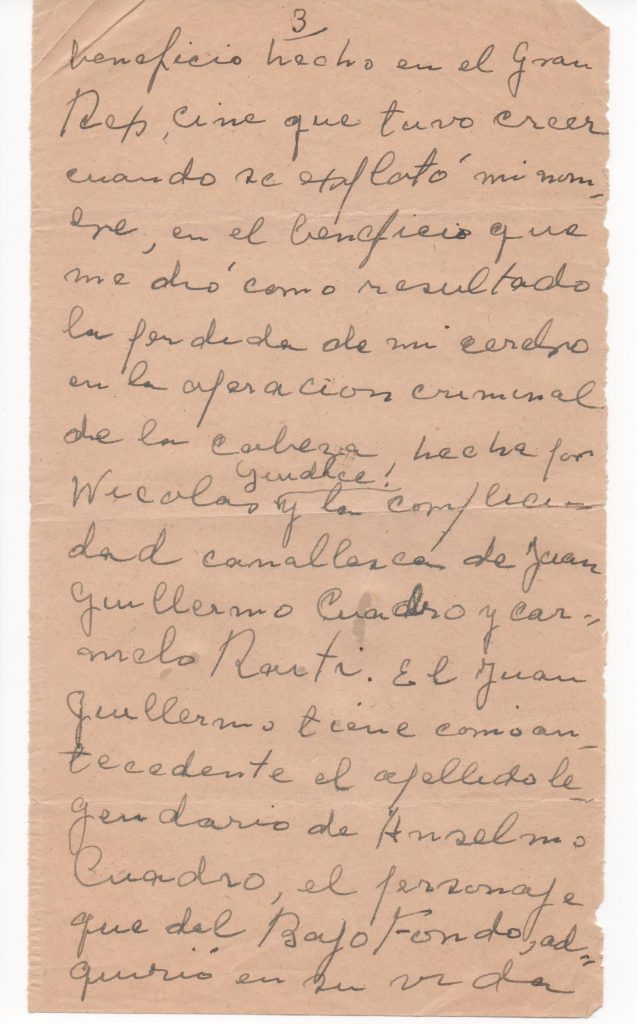 3
beneficio hecho en el Gran
Rex, cine que tuvo creer
cuando se explotó mi nom-
bre, en el beneficio que
me dió como resultado
la perdida de mi cerebro
en la operacion criminal
de la cabeza, hecha por
Giudice!
Nicolas y la complici-
dad canallesca de Juan
Guillermo Cuadro y Car-
melo Raiti. El Juan
Guillermo tiene como an-
tecedente el apellido le-
gendario de Anselmo
Cuadro, el personaje
que del Bajo Fondo, ad-
quirió en su vida